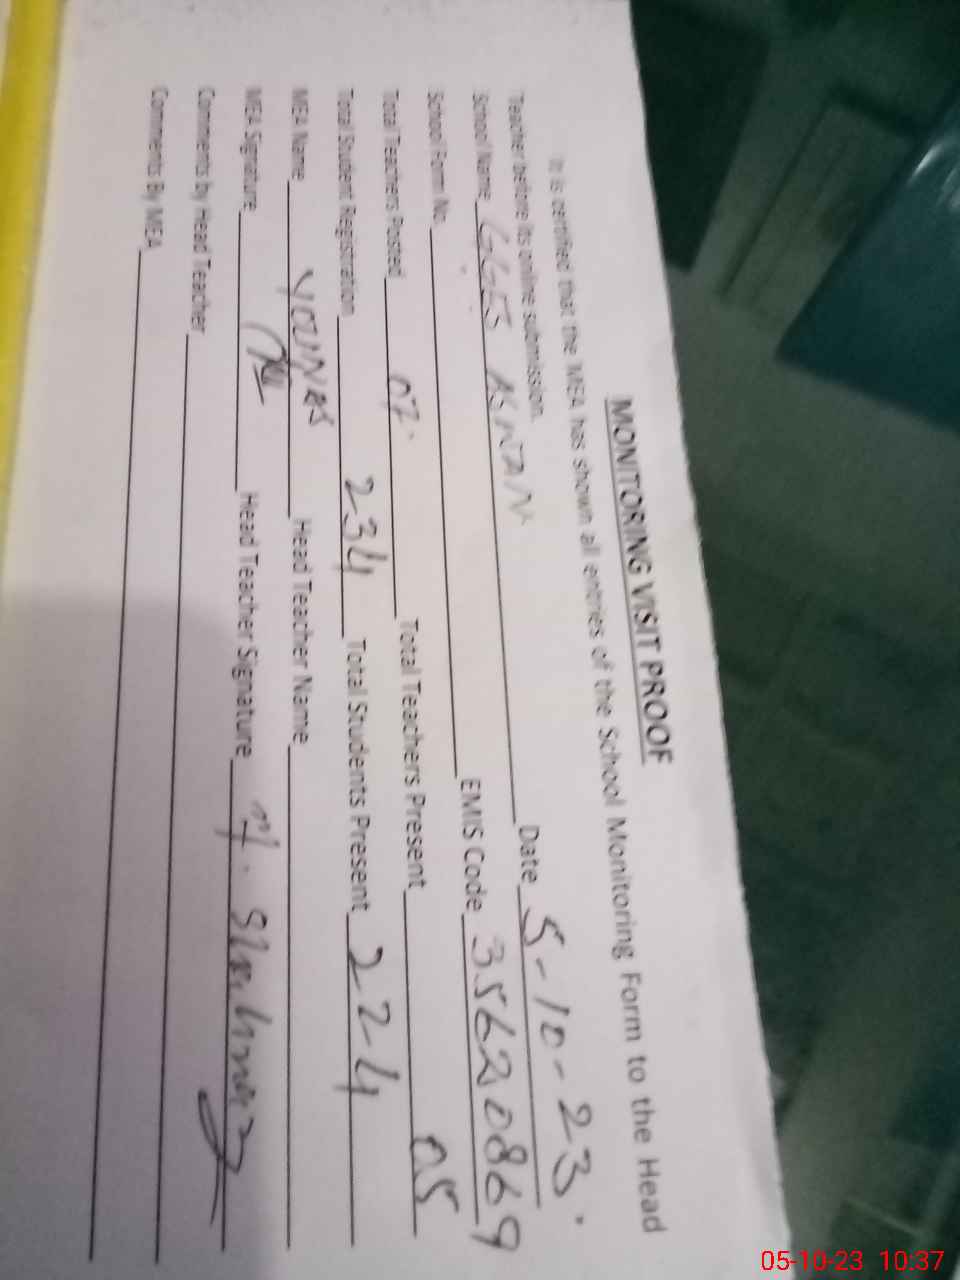 MONITORING VISIT PROOF
It is certified that the MEA has shown all entries of the School Monitoring Form to the Head
Teacher before its online submission.
Date 5-10-23.
School Name GGES
School Form No. EMIS Code 35620869
Total Teachers Posted 07. Total Teachers Present 05
Total Student Registration 234 Total Students Present 224
MEA Name YOUNAS Head Teacher Name
MEA Signature Head Teacher Signature
Comments by Head Teacher
Comments By MEA
05-10-23 10:37